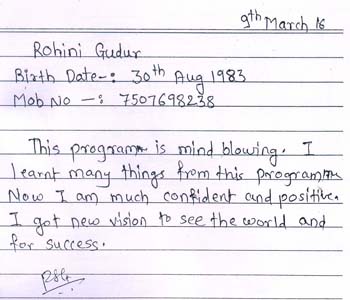 9th March 16
Rohini Gudur
Birth Date-: 30th Aug 1983
Mob No -: 7507698238
This program is mind blowing. I
learnt many things from this program
Now I am much confident and positive.
I got new vision to see the world and
for success.